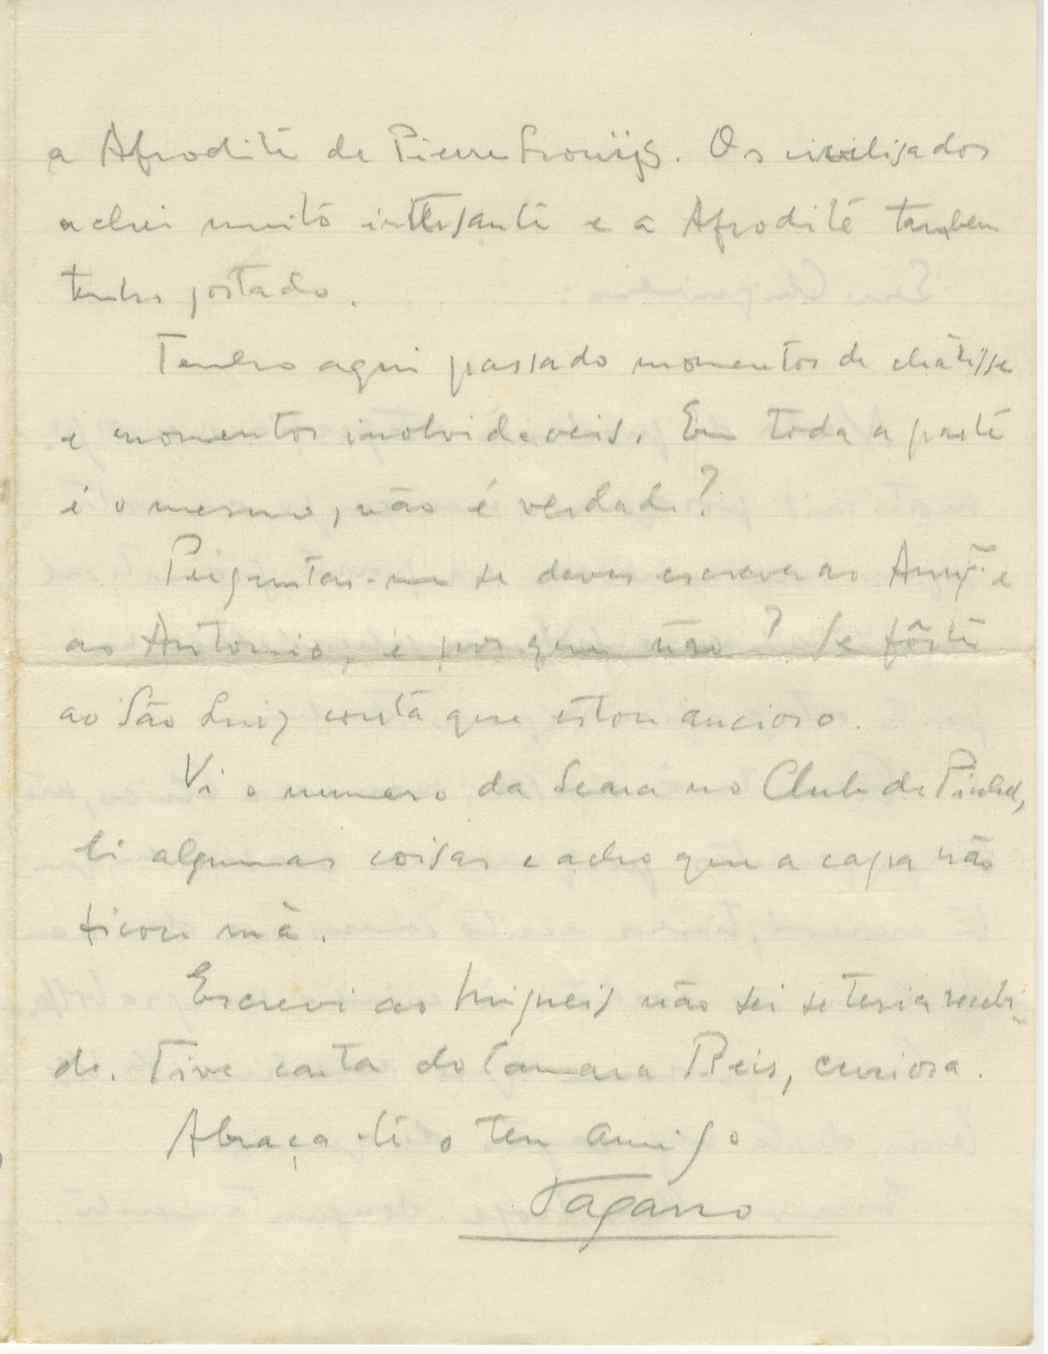 a Afrodite de Pierre Louijs. Os civilisados
achei muito intersante e a Afrodite tambem
tenho gostado.
Tenho aqui passado momentos de chatisse
e momentos inolvidaveis. Em toda a parte
é o mesmo, não é verdade?
Perguntas-me se deves escrever ao e
ao Antonio, e porque não? Se fôste
ao São Luiz conta que estou ancioso.
Vi o numero da Seara no Club de Pinhel,
li algumas coisas e acho que a capa não
ficou má.
Escrevi ao Migueis não sei se teria recebi-
do. Tive carta do Camara Reis, curiosa.
Abraça-te o teu amigo